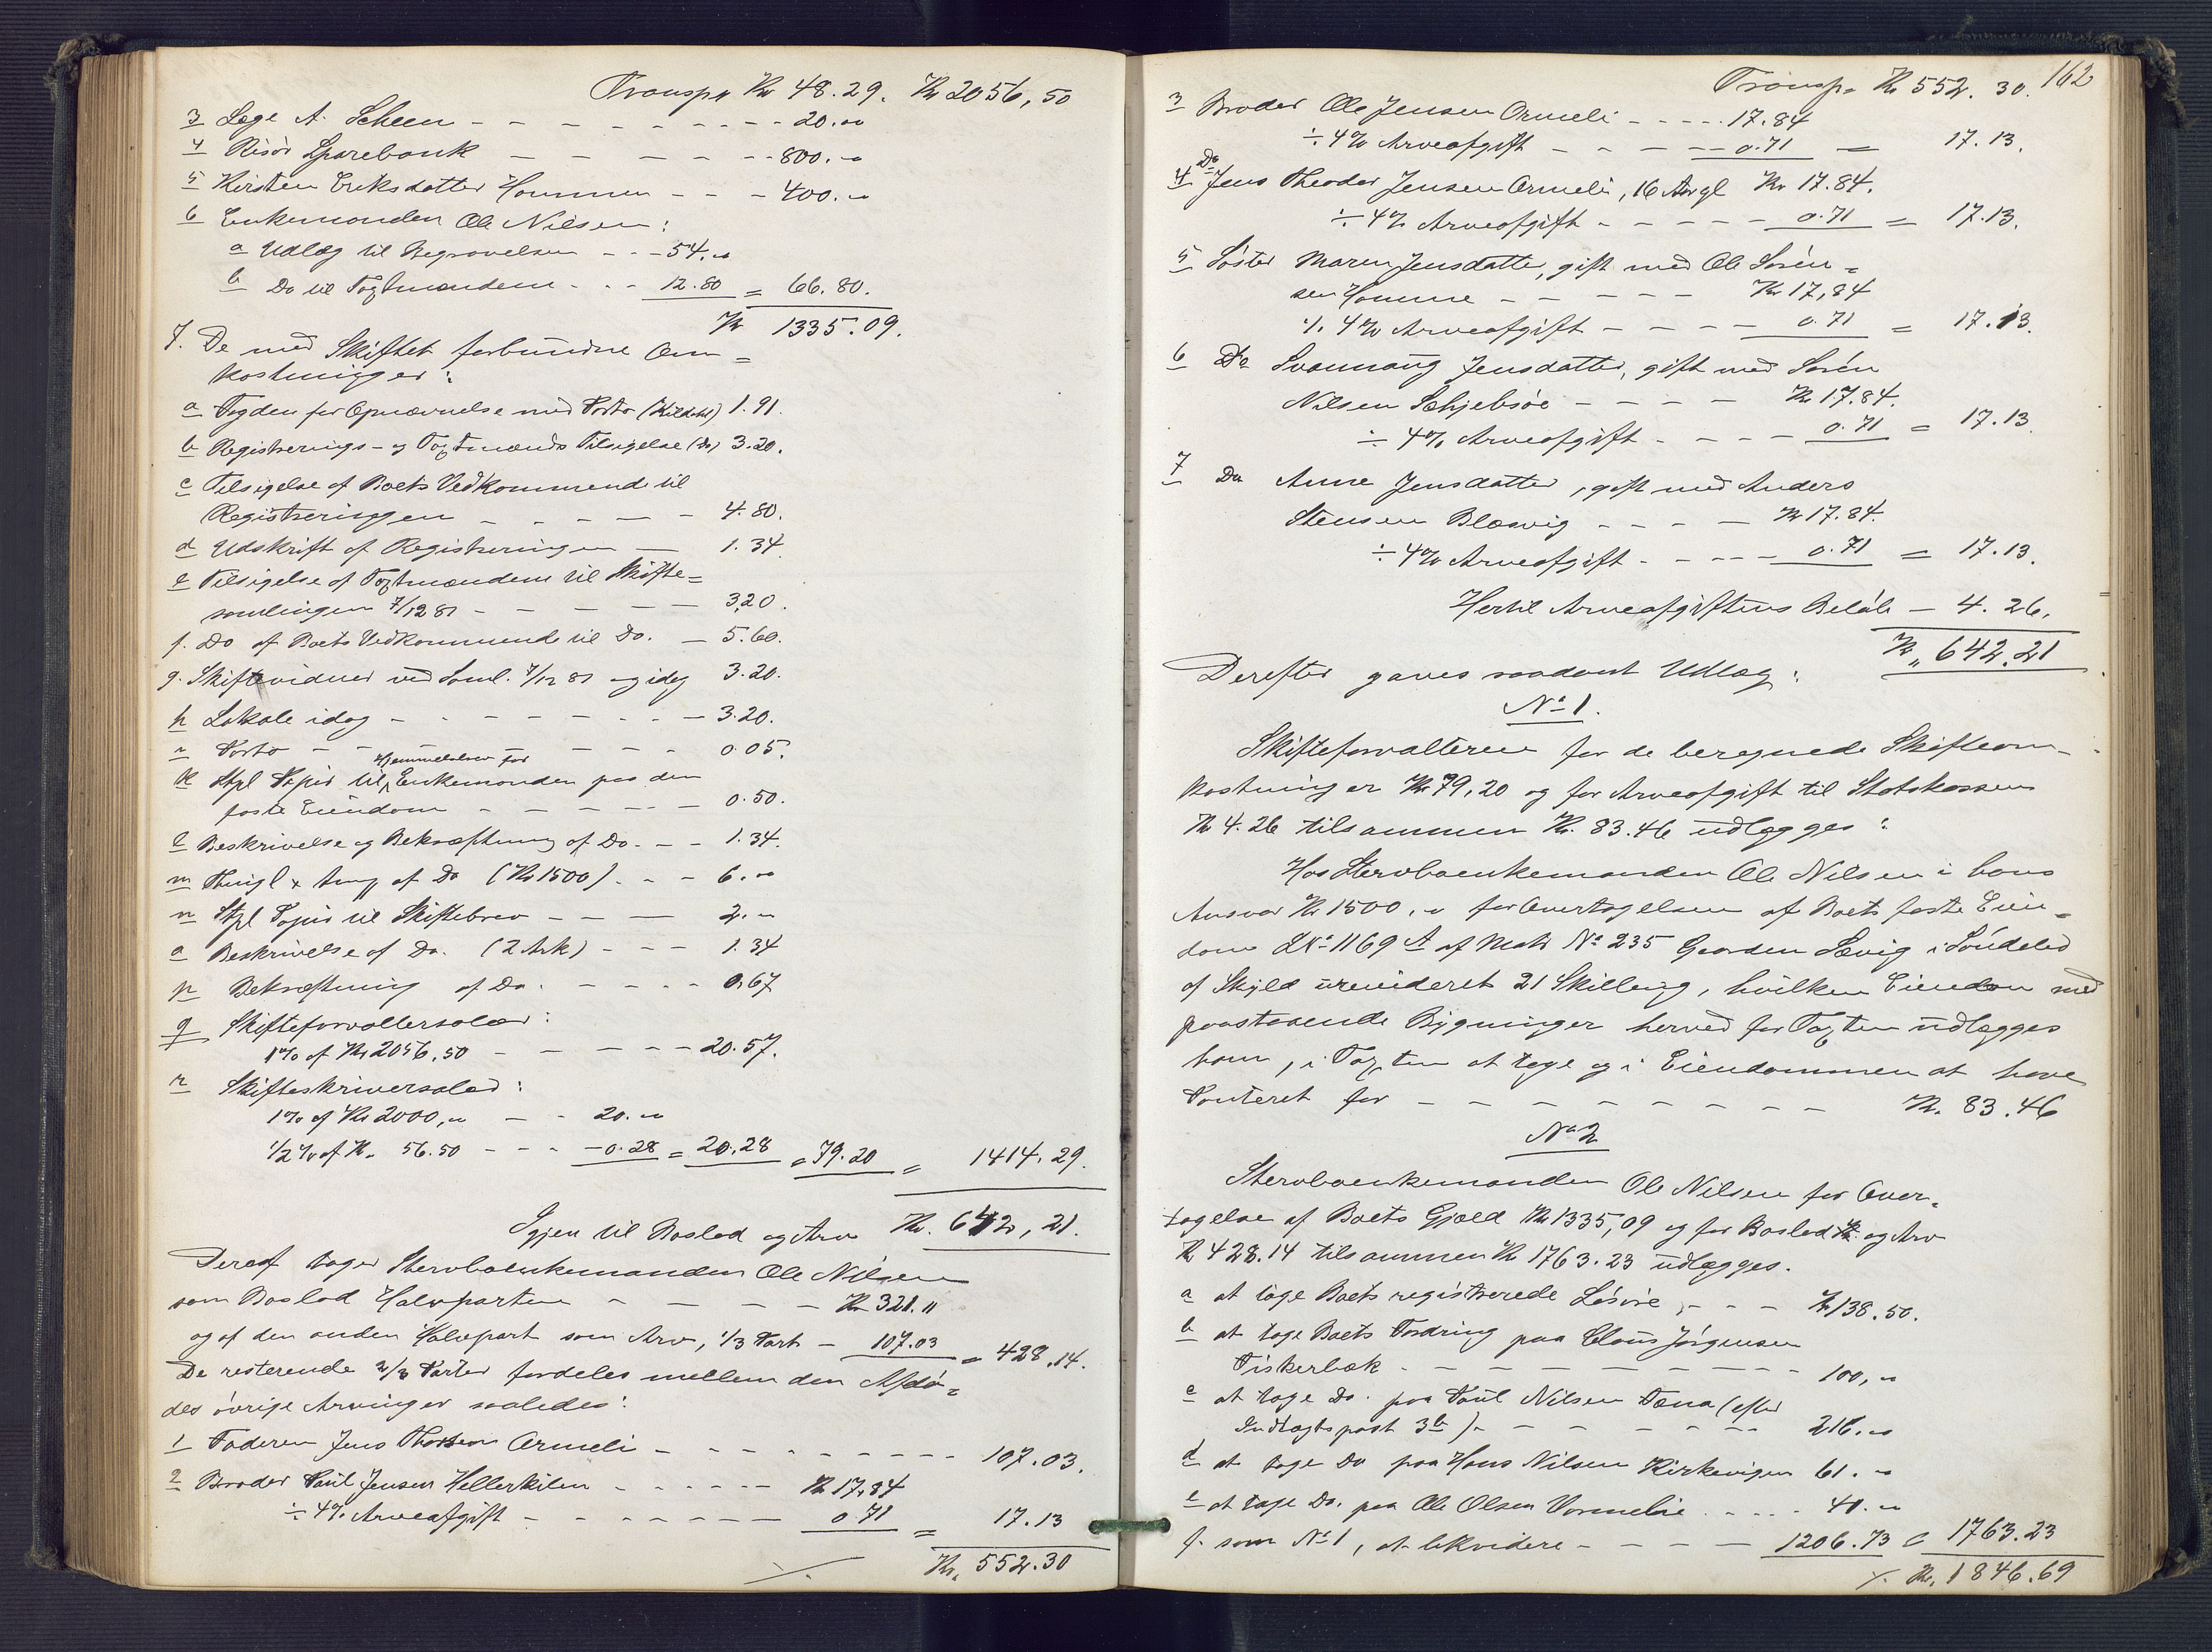 Transp. Kr 48.29. Kr 2056,50
3 Læge A. Scheen - - - - - - - - 20.00
4 Risör Sparebank - - - - - - 800.00
5 Kirsten Eriksdatter Hommen - - - 400.00
6 Enkemanden Ole Nilsen:
a Udlæg til Begravelsen - - - 54.00
b Do til Taxtmændene - - - 12.80 = 66.80.
Kr 1335.09.
7. De med Skiftet forbundne Om=
kostninger:
a Fogden for Opnævnelse med Porto (Kildal) 1.91.
b Registrerings- og Taxtmænds Tilsigelse (Do) 3.20.
c Tilsigelse af Boets Vedkommende til
Registreringen - - - - - 4.80.
d Udskrift af Registreringen - 1.34
e Tilsigelse af Taxtmændene til Skifte=
samlingen 7/12 81 - - - - - 3,20.
f. Do af Boets Vedkommende til Do. - 5.60.
g. Skiftevidner ved Saml. 7/12 81 og idag 3.20.
h Lokale idag - - - - - - - - 3.20.
i Porto - - - - - - 0.05.
Hjemmelsbrev for
k Stpl Papir til Enkemanden paa den
faste Eiendom - - - - - - 0.50.
l Beskrivelse og Bekræftning af Do. - - 1.34.
m Thingl & Ang af Do (Kr 1500) - - - 6.00
n Stpl Papir til Skiftebrev - - - 2.00
o Beskrivelse af Do. (2 Ark) - - - 1.34
p Bekræftning af Do. - - - - 0.67
q Skifteforvaltersalær:
1% af Kr 2056.50 - - - - - 20.57.
r Skifteskriversalær:
1% af Kr 2000,00 - - 20.00
1/2% af Kr. 56.50 - - - 0.28 = 20.28 = 79.20 = 1414.29.
Igjen til Boslod og Arv Kr. 642,21.
Deraf tager Stervboenkemanden Ole Nilsen
som Boslod Halvparten - - - - Kr 321.11
og af den anden Halvpart som Arv, 1/3 Part - 107.03 = 428.14.
De resterende 2/3 Parter fordeles mellem den Afdö=
des övrige Arvinger saaledes:
1 Faderen Jens Thorsen Ormeli - - - - - - - 107.03.
2 Broder Paul Jensen Hellerkilen - - - - - Kr 17,84
÷ 4% Arveafgift - - - - - - - 0.71 = 17.13
Kr. 552.30
Transp. Kr 552.30. 162
3 Broder Ole Jensen Ormeli - - - - 17.84
÷ 4% Arveafgift - - - - - 0.71 = 17.13.
4 Do Jens Theodor Jensen Ormeli, 16 Aar gl Kr 17.84.
÷ 4% Arveafgift - - - - - 0.71 = 17.13.
5 Söster Maren Jensdatter, gift med Ole Sören=
sen Homme - - - - - Kr 17,84
÷ 4% Arveafgift - - - - 0.71 = 17.13.
6 Do Svannaug Jensdatter, gift med Sören
Nilsen Schjebsöe - - - - Kr 17.84.
÷ 4% Arveafgift - - - - 0.71 = 17.13.
7 Do Anne Jensdatter, gift med Anders
Stensen Blaavig - - - - Kr 17.84.
÷ 4% Arveafgift - - - - 0.71 = 17.13.
Hertil Arveafgiftens Belöb - 4.26.
Kr. 642.21
Derefter gaves saadant Udlæg:
No 1.
Skifteforvalteren for de beregnede Skifteom-
kostninger Kr. 79,20 og for Arveafgift til Statskassen
Kr 4.26 tilsammen Kr. 83.46 udlægges:
Hos Stervboenkemanden Ole Nilsen i hans
Ansvar Kr 1500,00 for Overtagelsen af Boets faste Eien=
dom LNo 1169 A af Matr No 235 Gaarden Sævig i Söndeled
af Skyld urevideret 21 Skilling, hvilken Eiendom med
paastaaende Bygninger herved for Taxten udlægges
ham, i Taxten at tage og i Eiendommen at have
Panteret for - - - - - - - - - Kr. 83.46
No 2
Stervboenkemanden Ole Nilsen for Over=
tagelse af Boets Gjæld Kr 1335,09 og for Boslod og Arv
Kr 428.14 tilsammen Kr 1763.23 udlægges.
a at tage Boets registrerede Lösöre, - - - Kr 138.50.
b at tage Boets Fordring paa Claus Jörgensen
Fiskerbæk - - - - - - - - - - 100,00
c at tage Do. paa Paul Nilsen (efter
Indtægtspost 3b) - - - - - - 216.00
d at tage Do paa Hans Nilsen Kirkevigen 61.00
e at tage Do. paa Ole Olsen Vormelie - - - - 41.00
f. som No 1, at likvidere - - - - - 1206.73 = 1763.23
Kr. 1846.69